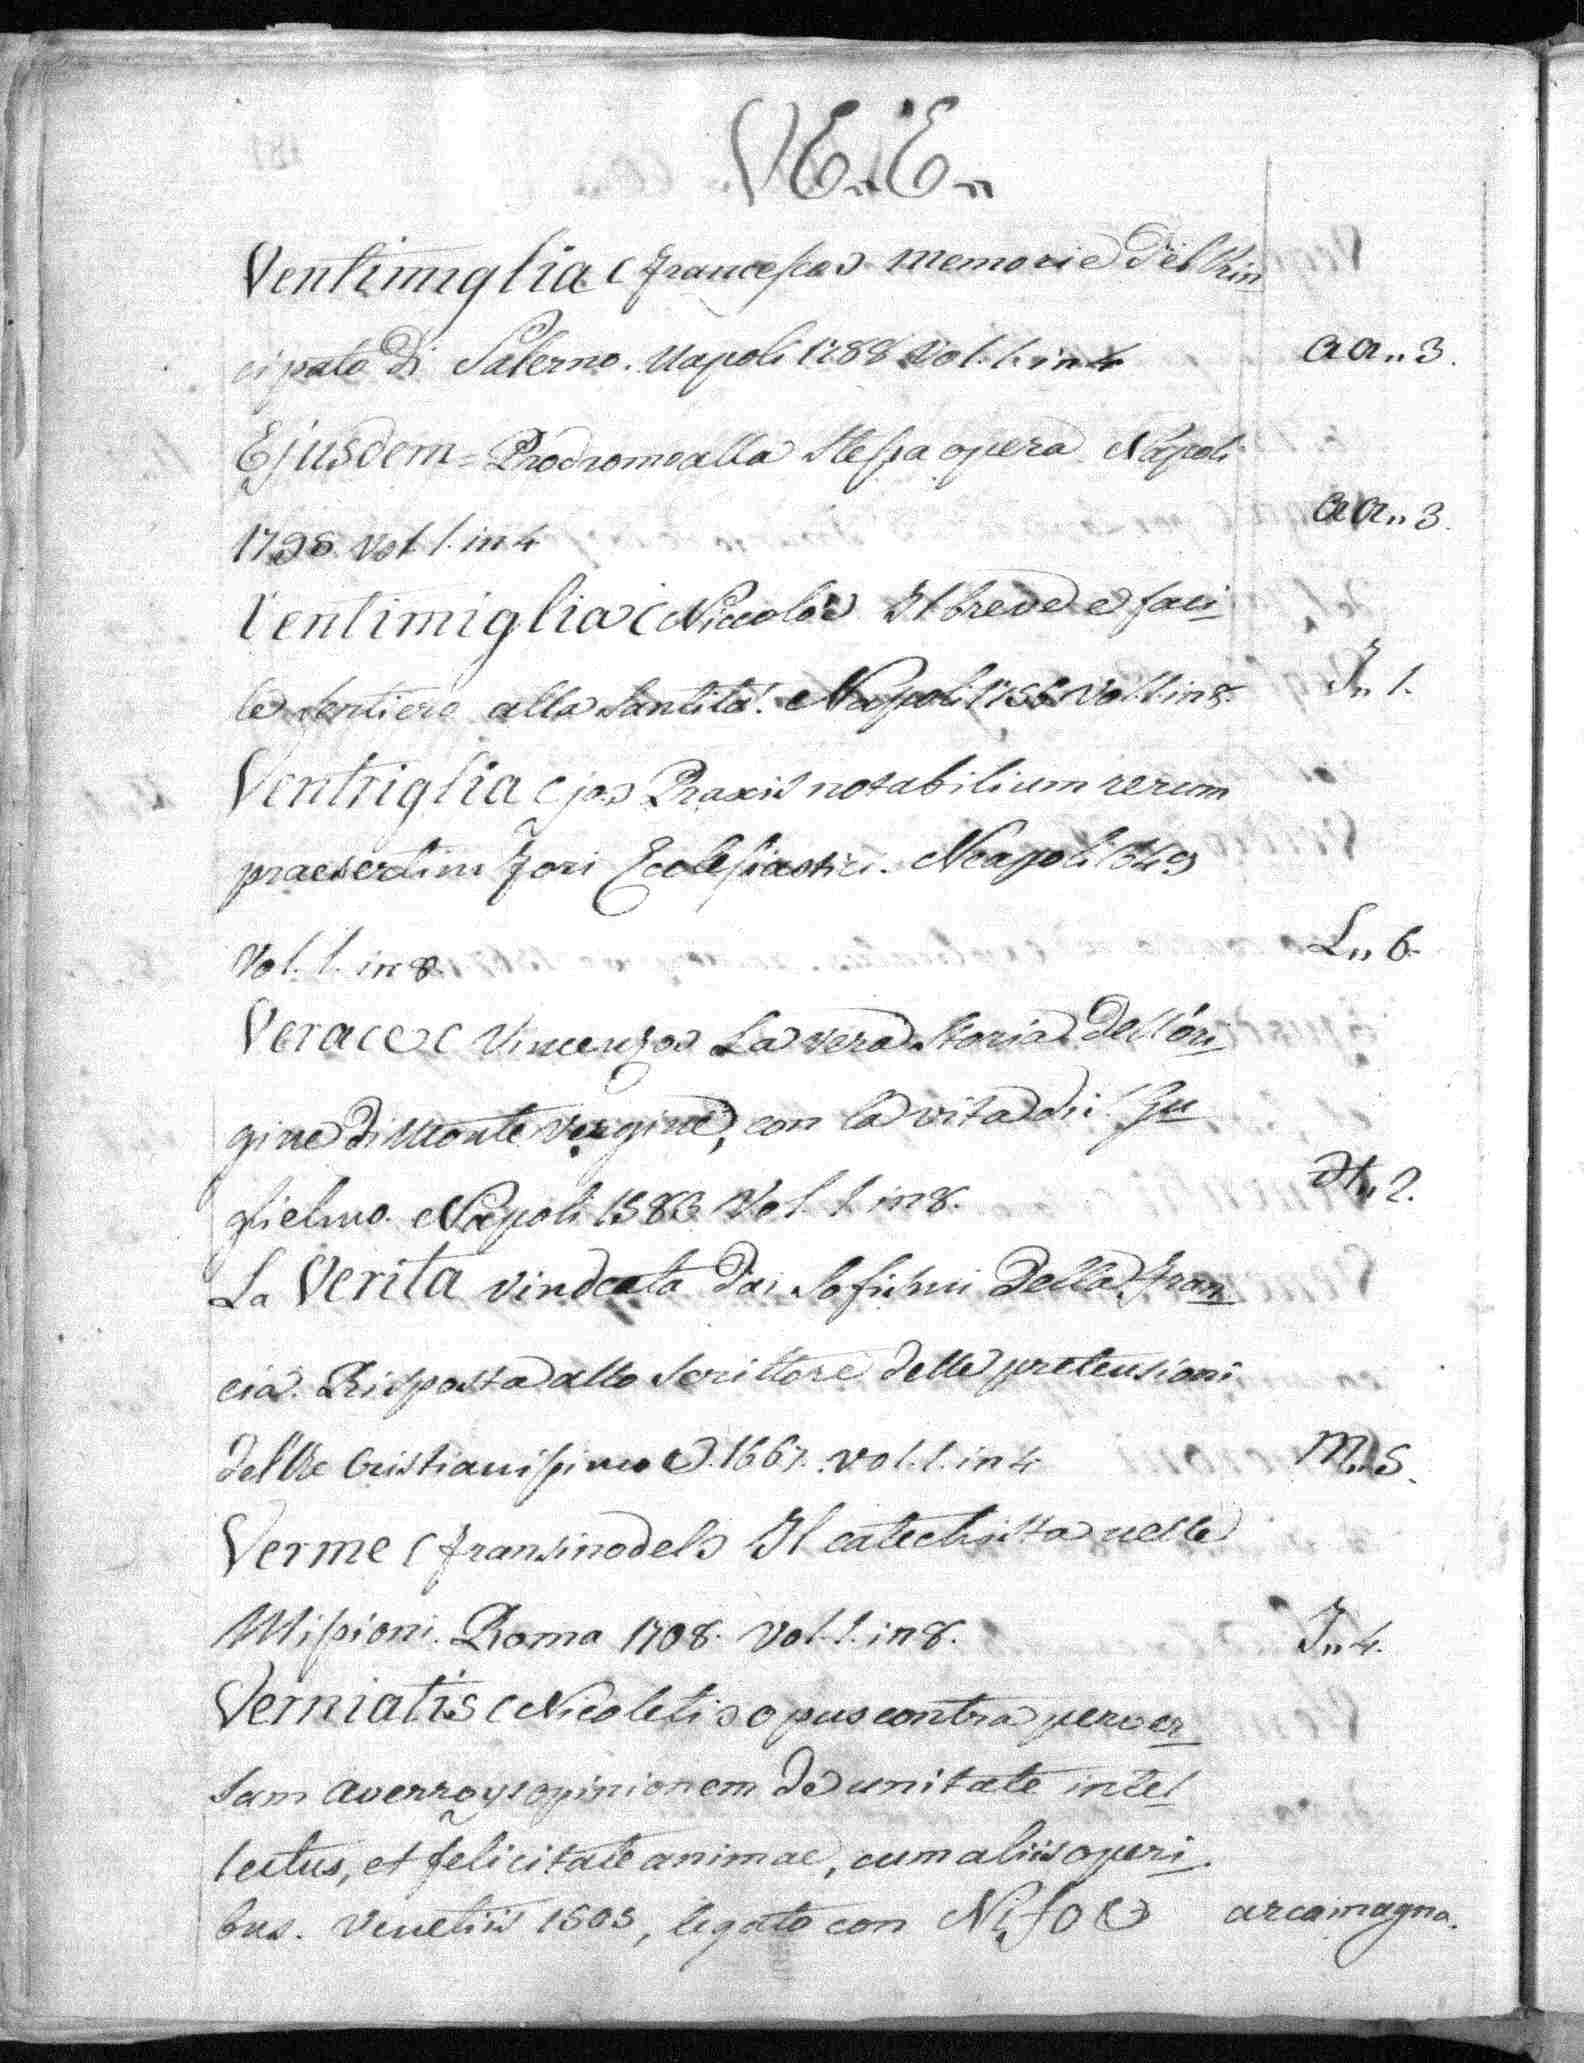 VE„E„
Ventimiglia (Francesco) memorie del Prin
cipato di Salerno. Napoli 1788 Vol. 1. in 4 aa„3.
Ejusdem = Prodromo alla stessa opera Napoli
1798 vol. 1. in 4 aa„3.
Ventimiglia (Niccolò) Il breve e faci
le sentiero alla Santità. Napoli 1756 Vol. 1. in 8. I„1.
Ventriglia (jo.) Praxis notabilium rerum
praesertim Fori Ecclesiastici. Neapoli 1649
Vol. 1. in 8 L„6.
Verace (Vincenzo) La vera storia dell'ori
gine di Monte vergine, con la vita di Gu
glielmo. Napoli 1585 Vol. 1. in 8. H„2.
La Verita vindcata dai Sofismi della Fran
cia. Risposta allo Scrittore delle pretensioni
del Re Cristianissimo 1667. vol. 1. in 4 M„5.
Verme (Fransino del) Il catechista nelle
Missioni. Roma 1708. Vol. 1. in 8. I„4.
Verniatis (Nicoleti) opus contra perver
sam averroys opinionem de unitate intel
lectus, et felicitate animae, cum aliis operi
bus. Venetiis 1505, legato con Nifo arca magna.